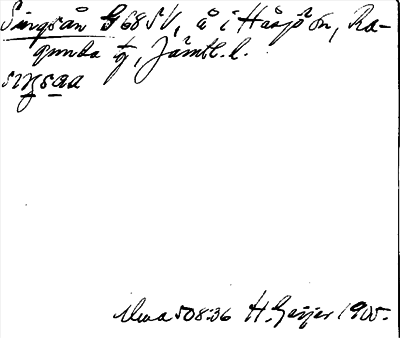 Singsån G 68 SV, å i Håsjö sn, Ra-
gunda tg, Jämtl. l.
sıŋsaa
Uma 508:36 H. Geijer 1905.